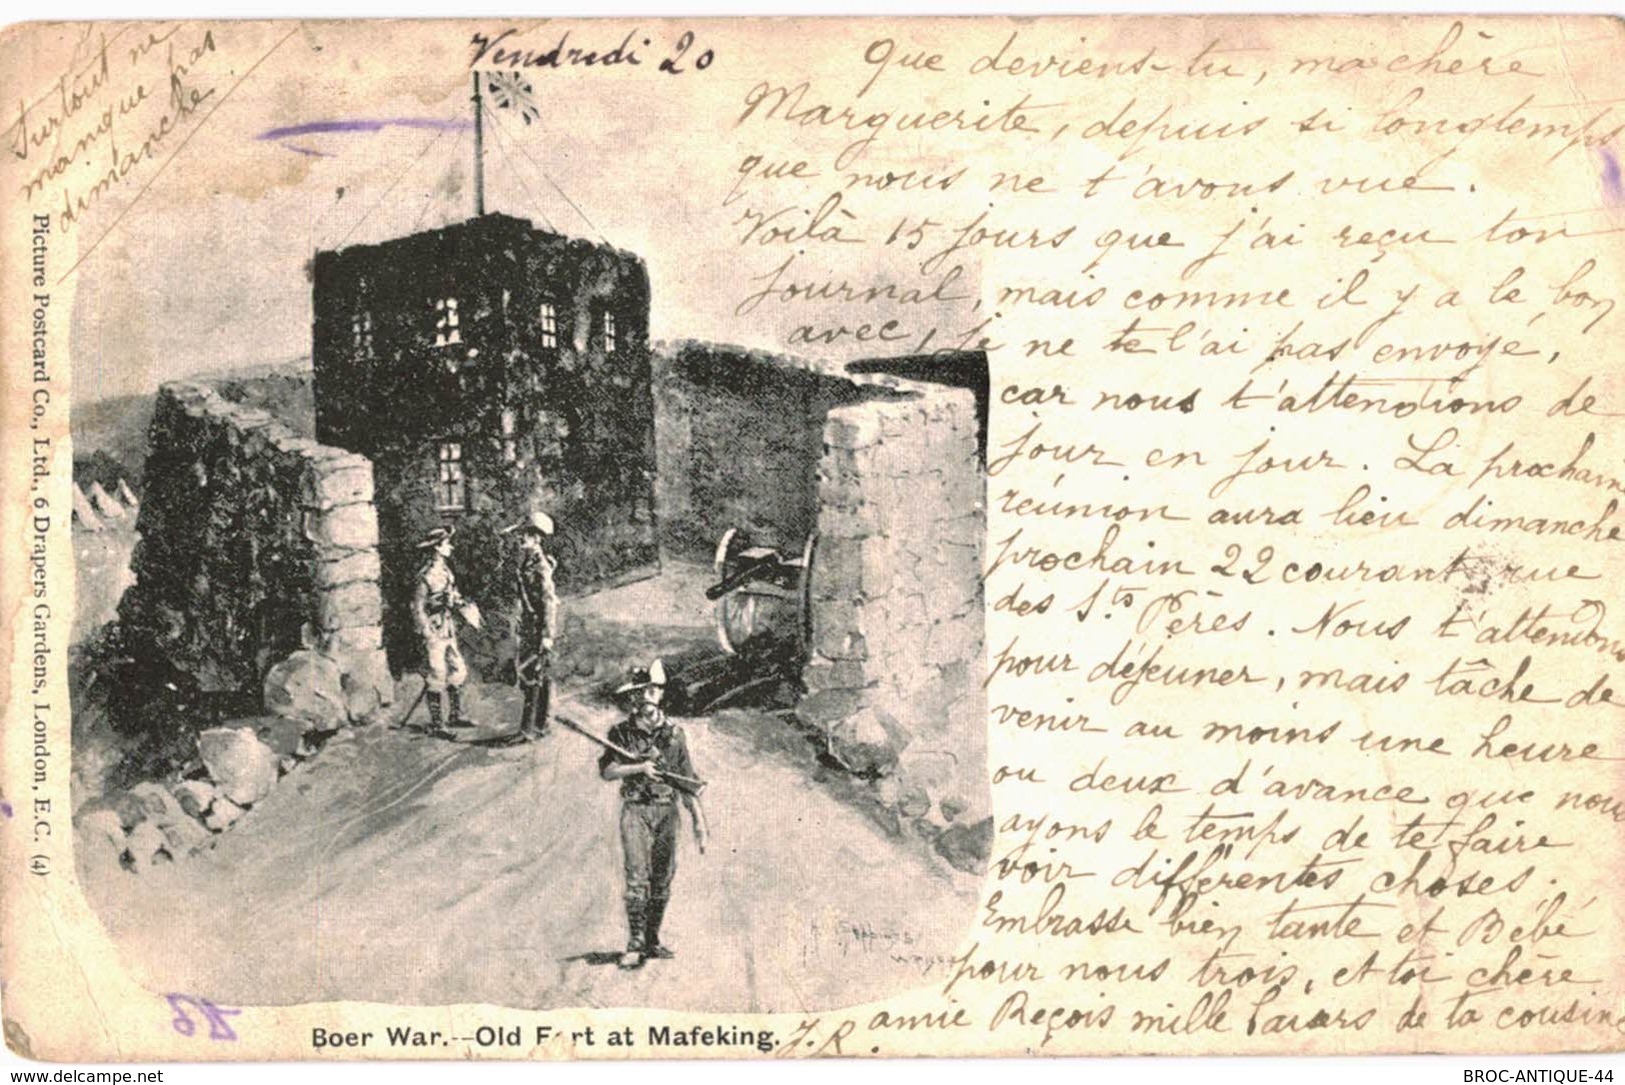 Surtout ne
manque pas
dimanche
Vendredi 20
Que deviens-tu, ma chère
Marguerite, depuis si longtemps
que nous ne t'avons vue.
Voilà 15 jours que j'ai reçu ton
journal, mais comme il y a le bon
avec, je ne te l'ai pas envoyé,
car nous t'attendions de
jour en jour. La prochaine
réunion aura lieu dimanche
prochain 22 courant rue
des Sts Pères. Nous t'attendons
pour déjeuner, mais tâche de
venir au moins une heure
ou deux d'avance que nous
ayons le temps de te faire
voir différentes choses.
Embrasse bien tante et Bébé
pour nous trois, et toi chère
amie Reçois mille baisers de ta cousine
J. R.
Picture Postcard Co., Ltd., 6 Drapers Gardens, London, E.C. (4)
Boer War.--Old F rt at Mafeking.
delcampe.net
BROC-ANTIQUE-44